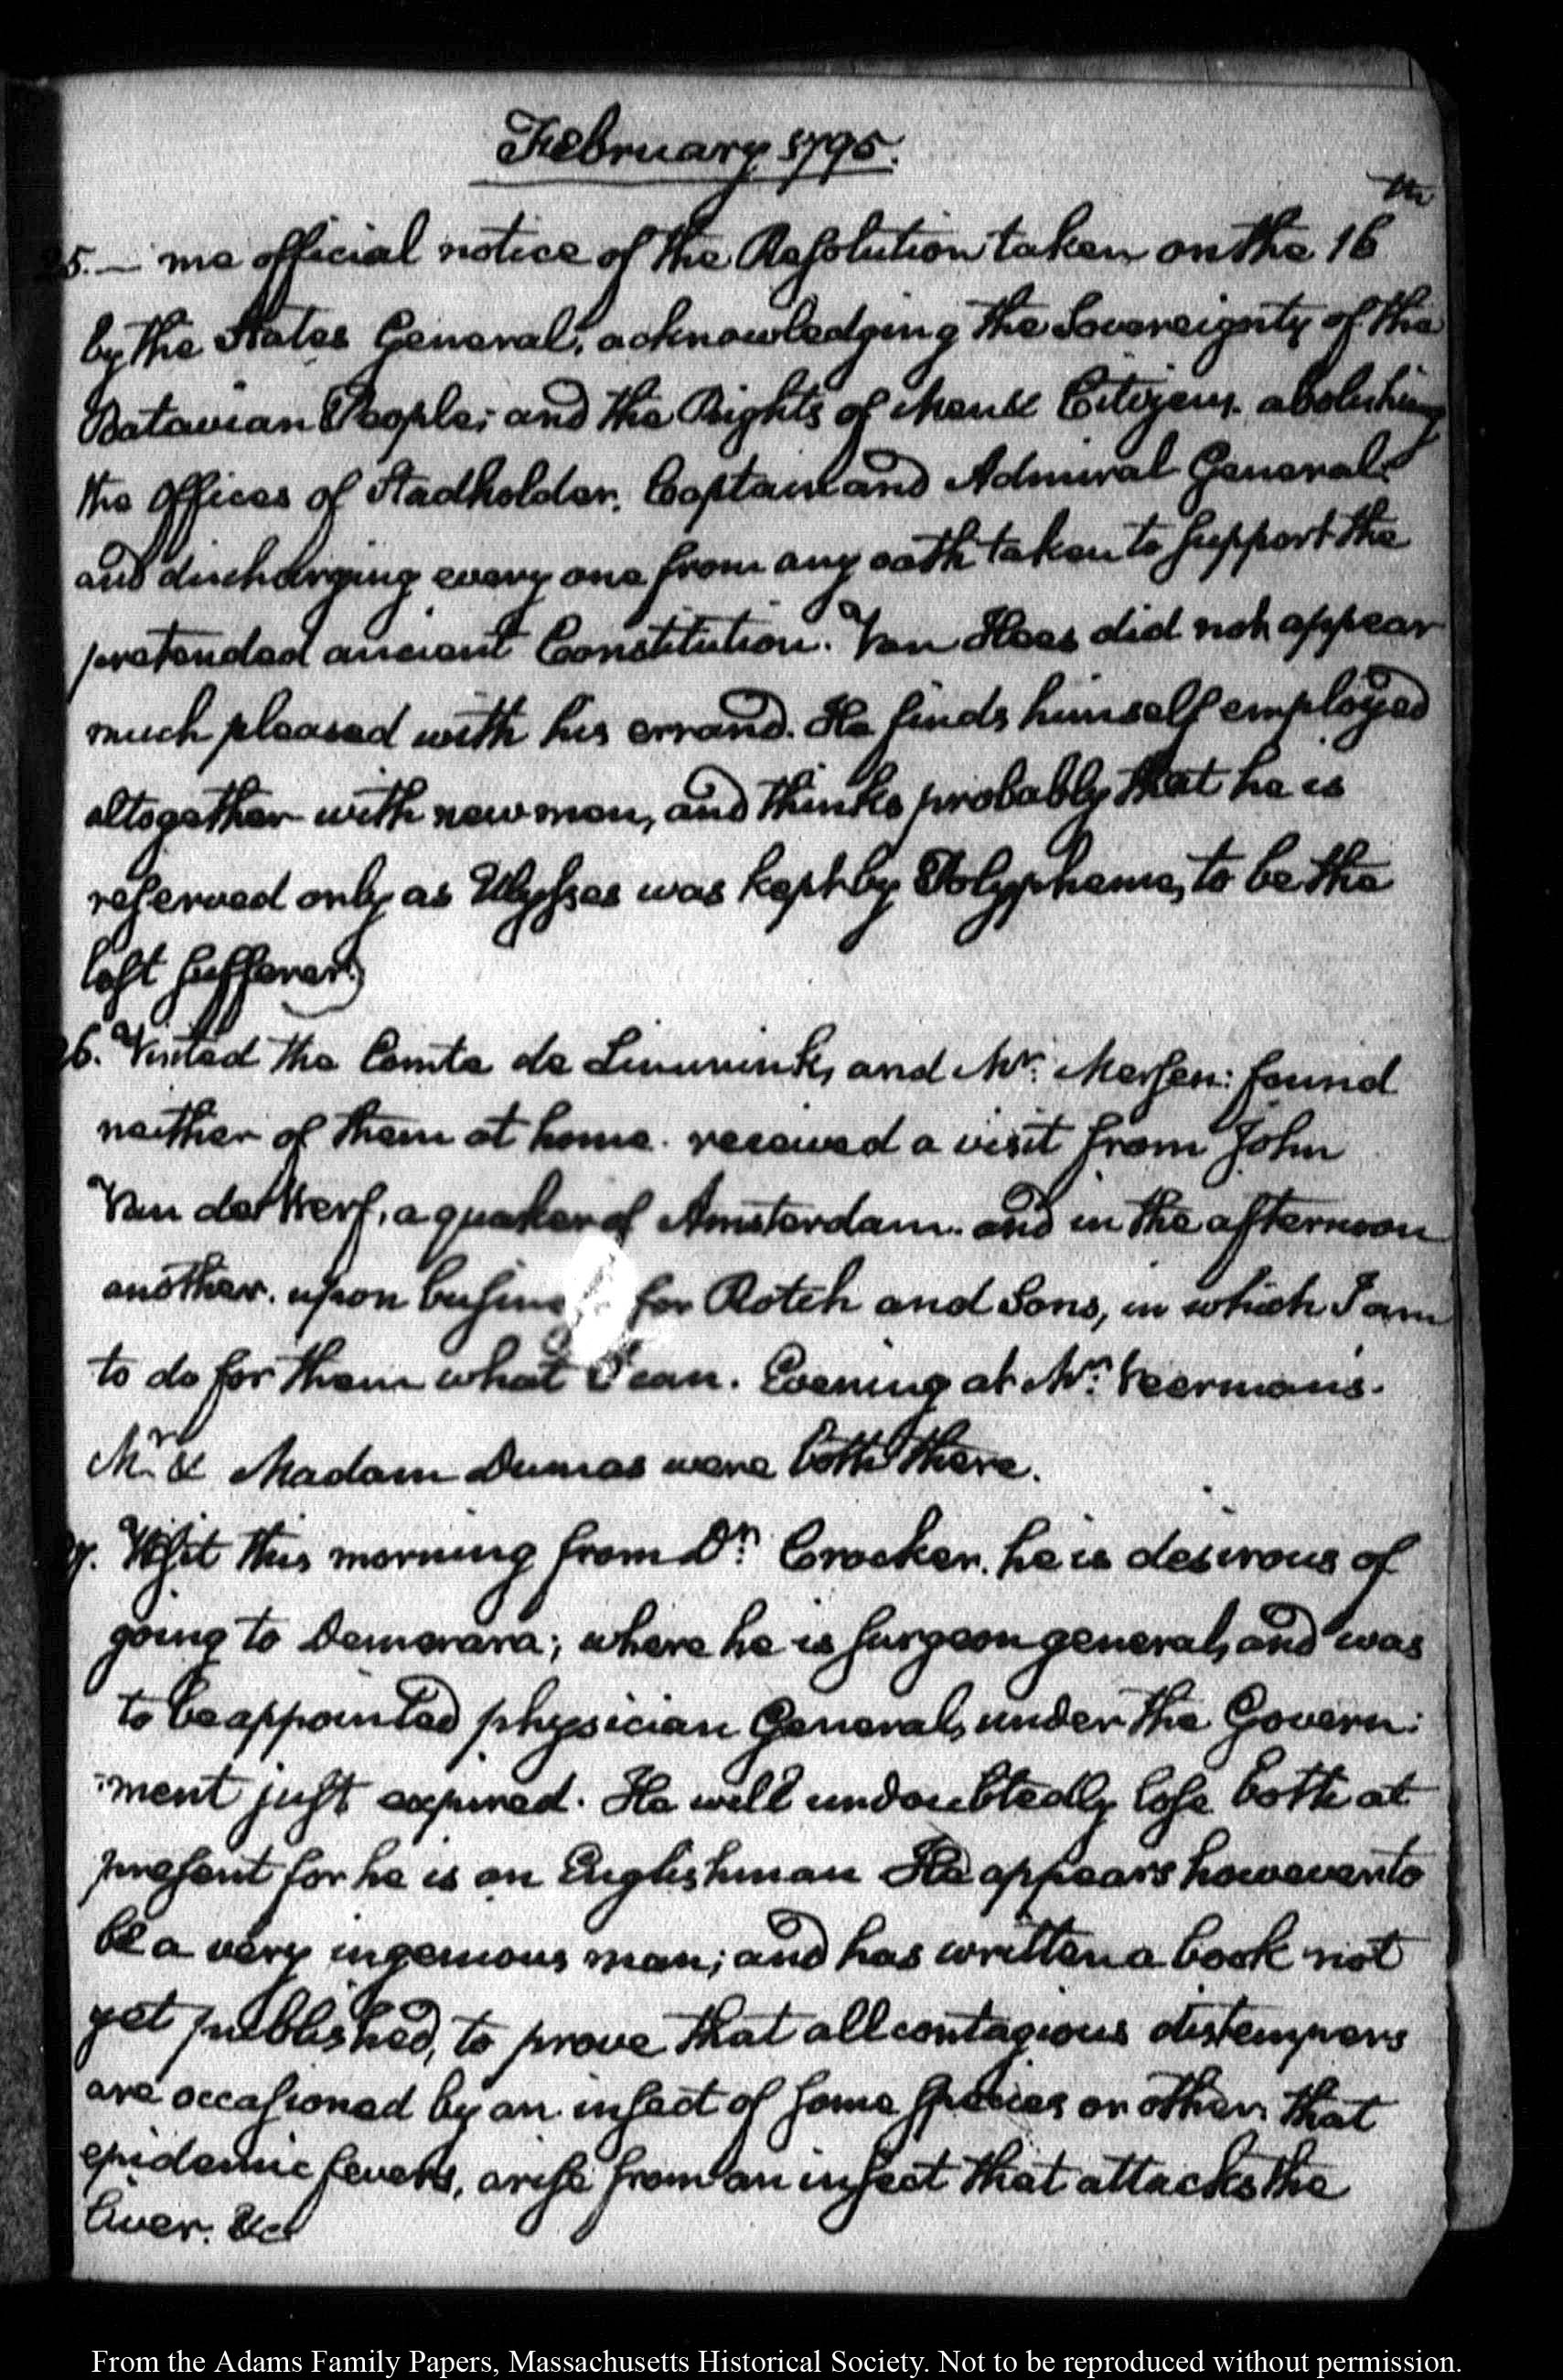 February 1795.
25. — me official notice of the Resolution taken on the 16th
by the States General, acknowledging the Sovereignty of the
Batavian People; and the Rights of Man & Citizens. abolishing
the Offices of Stadholder, Captain and Admiral General.
and discharging every one from any oath taken to support the
pretended ancient Constitution. Van Hees did not appear
much pleased with his errand. He finds himself employed
altogether with new men, and thinks probably that he is
reserved only as Ulysses was kept by Polypheme, to be the
last sufferer.)
26. Visited the Comte de and Mr: found
neither of them at home. received a visit from John
Van der Werf, a quaker of Amsterdam. and in the afternoon
another. upon business for Rotch and Sons, in which I am
to do for them what I can. Evening at Mr: Veerman's.
Mr. & Madam Dumas were both there.
27. Visit this morning from Dr: Crocker. he is desirous of
going to Demerara; where he is surgeon general, and was
to be appointed physician General, under the Govern:
:ment just expired. He will undoubtedly lose both at
present for he is an Englishman He appears however to
be a very ingenious man; and has written a book not
yet published, to prove that all contagious distempers
are occasioned by an insect of some species or other. that
epidemic fevers, arise from an insect that attacks the
liver. &c
From the Adams Family Papers, Massachusetts Historical Society. Not to be reproduced without permission.